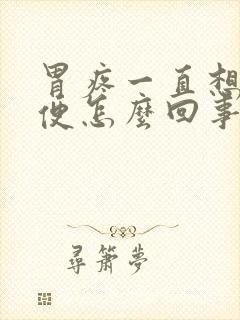 胃疼一直想
便怎麼回事
尋簫夢